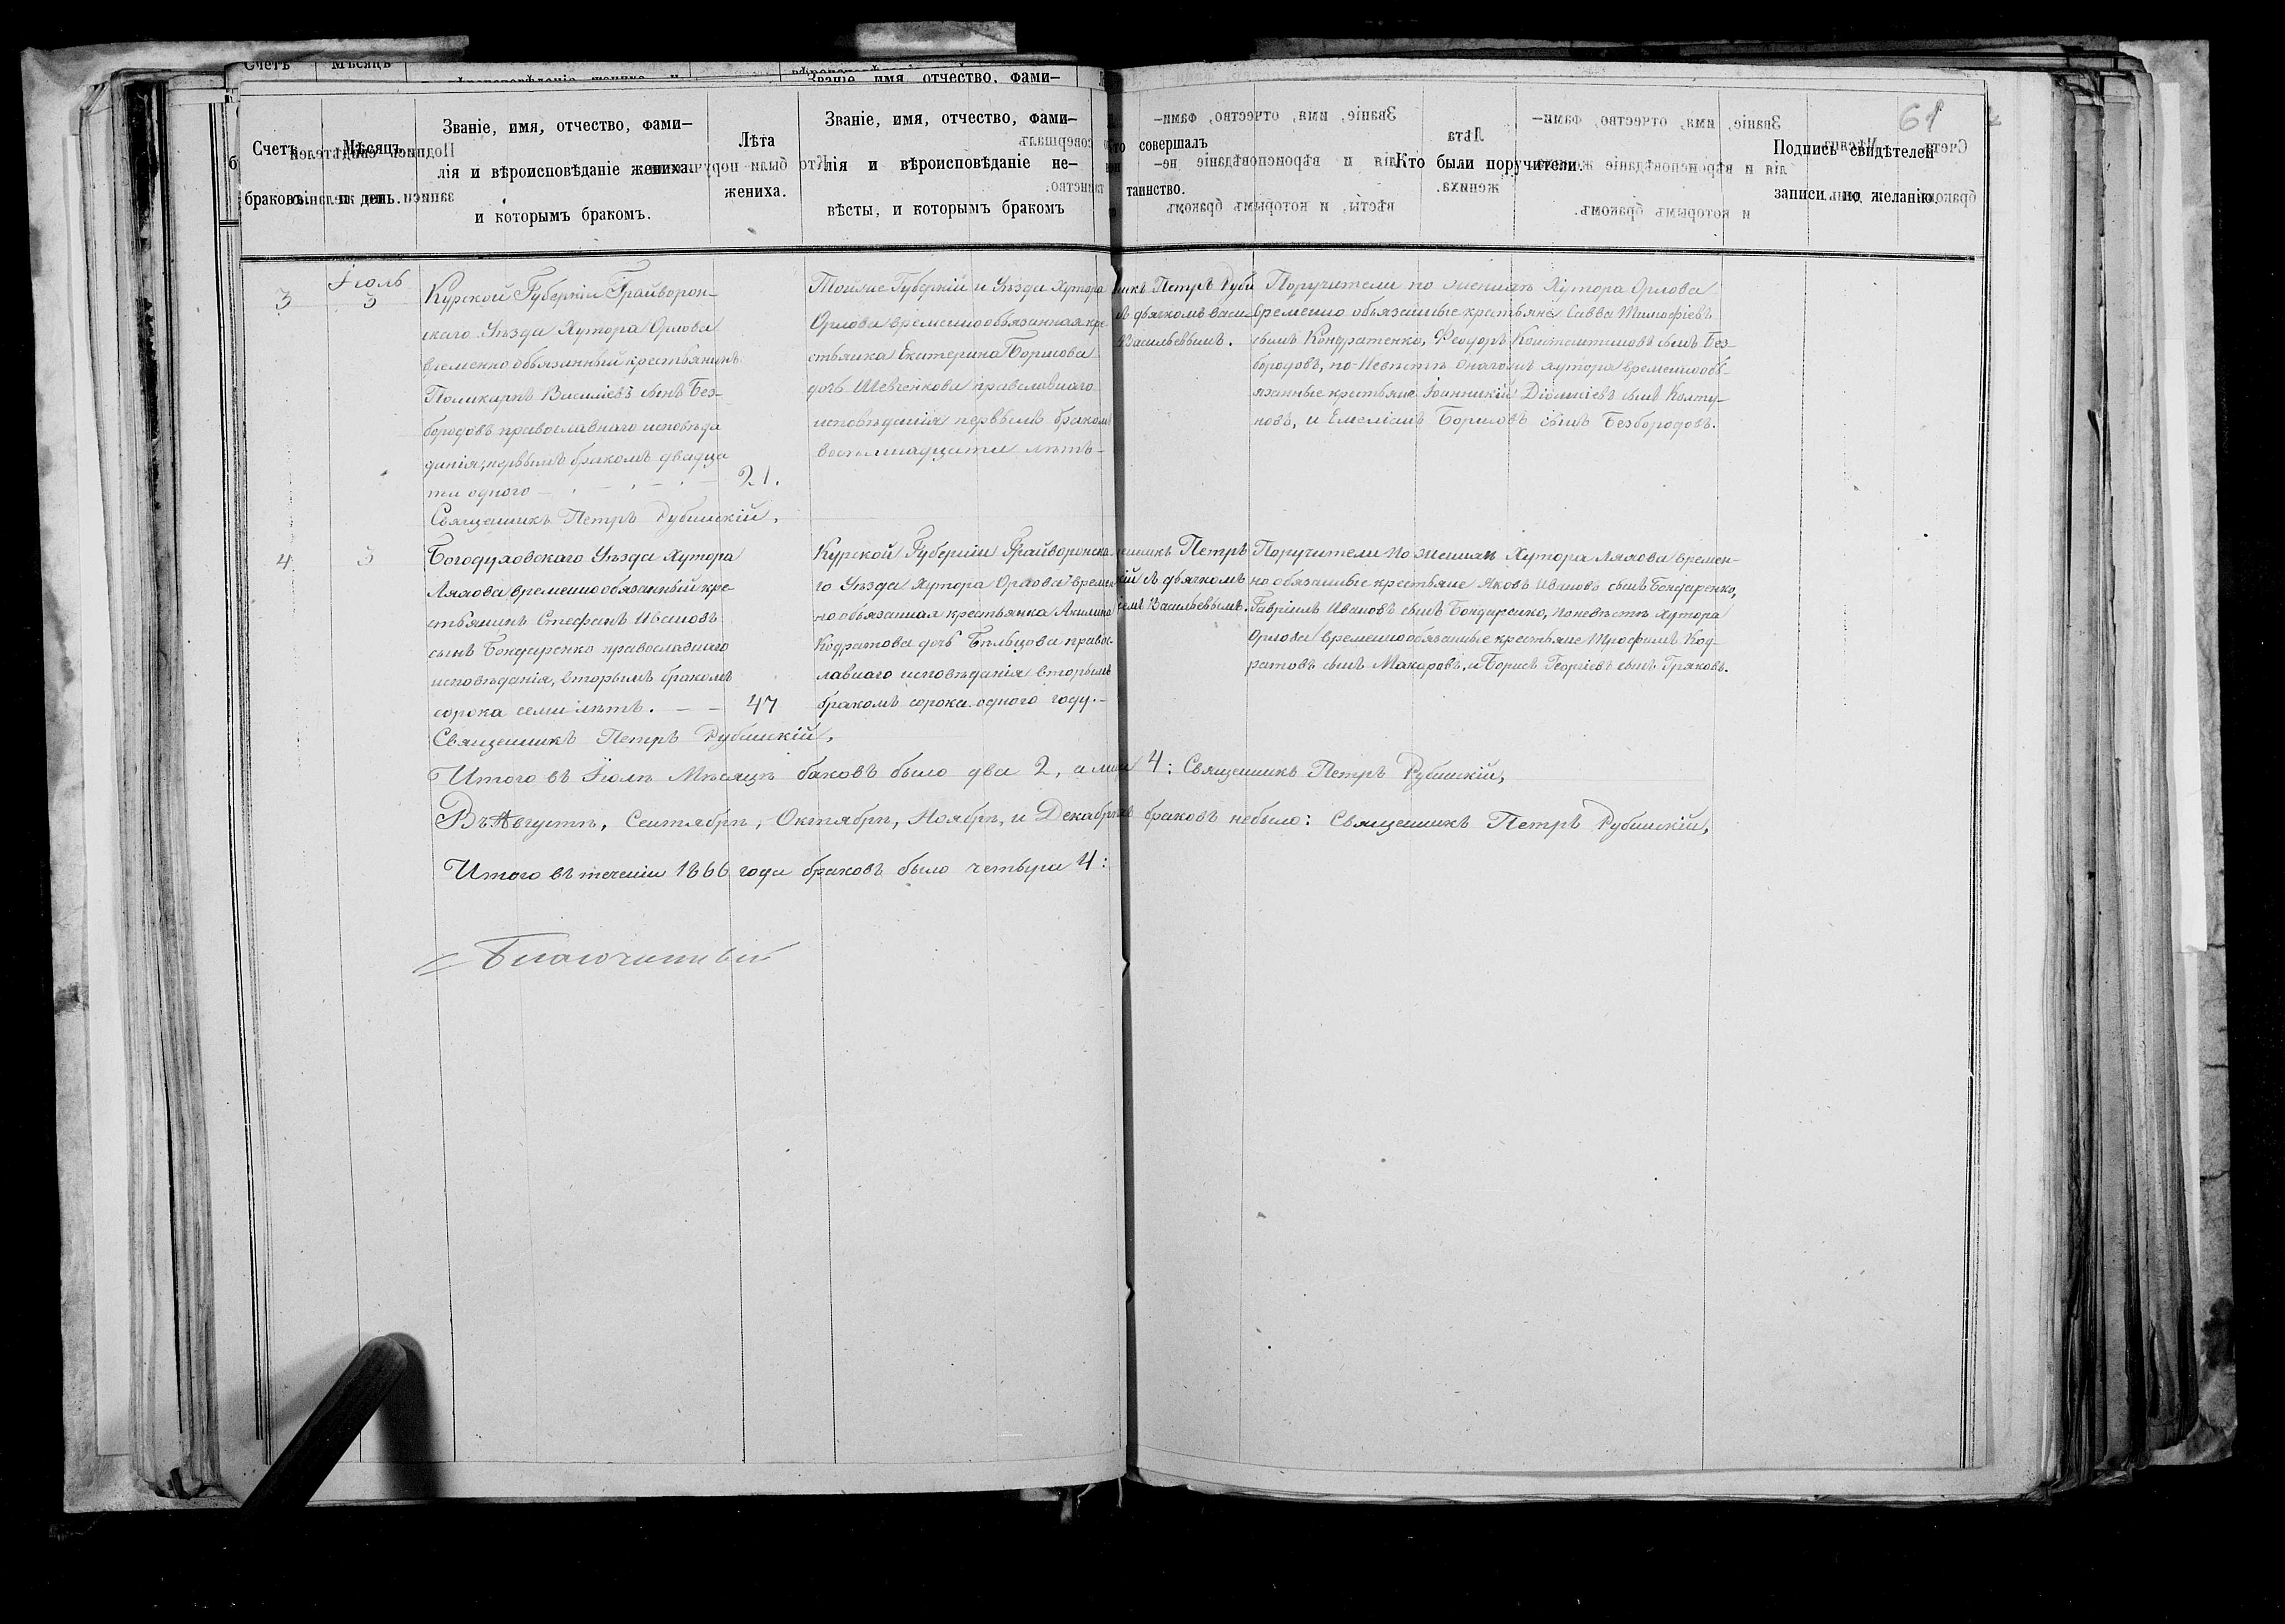 61
Счетъ
браковъ.
Мѣсяцъ
и день.
Званіе, имя, отчество, фами-
лія и вѣроисповѣданіе жениха
и которымъ бракомъ.
Лѣта
жениха.
Званіе, имя, отчество, фами-
лія и вѣроисповѣданіе не-
вѣсты, и которымъ бракомъ
совершалъ
таинство.
Кто были поручители.
Подпись свидѣтелей
записи по желанію.
3
Іюль
3
Курской Губерніи Грайворон-
скаго Уѣзда Хутора Орлова
временно обязанный крестьянинъ
Поликарпъ Василіевъ сынъ Без-
бородовъ православнаго исповѣда
данія, первымъ бракомъ двадца
ти одного
21.
Священникъ Петръ Рубинскій,
Тойже Губерніи и Уѣзда Хутора
Орлова временнообязанная кре-
стьянка Екатерина Борисова
дочь Шевченкова православнаго
исповѣданія первымъ бракомъ
восемнадцати лѣтъ
никъ Петръ Руби
дьячкомъ Васи
Васильевымъ.
Поручители по женихѣ Хутора Орлова
временно обязанные крестьяне Савва Тимофіевъ
сынъ Кондратенко, Феодоръ Константиновъ сынъ Без-
бородовъ, по Невѣстѣ онагожъ хутора временнообя-
язанные крестьяне Іоанникій Діонисіевъ сынъ Колту-
новъ, и Емеліанъ Борисовъ сынъ Безбородовъ.
4
3
Богодуховскаго Уѣзда Хутора
Ляхова временнообязанный кре-
стьянинъ Стефанъ Ивановъ
сынъ Бондаренко православнаго
исповѣданія, вторымъ бракомъ
сорока семи лѣтъ.
47
Священникъ Петръ Рубинскій,
Курской Губерніи Грайворонска
го Уѣзда Хутора Орлова времен
но обязанная крестьянка Акилина
Кодратова дочь Бѣльцова правос-
лавнаго исповѣданія вторымъ
бракомъ сорока одного году.
никъ Петръ
кій дьячкомъ
Васильевымъ.
Поручители по женихѣ Хутора Ляхова времен-
но обязанные крестьяне Яковъ Ивановъ сынъ Бондаренко,
Гавріилъ Ивановъ сынъ Бондаренко, по невѣстѣ Хутора
Орлова временнообязанные крестьяне Трофимъ Код-
ратовъ сынъ Макаровъ, и Борисъ Георгіевъ сынъ Гряковъ.
Итого въ Іюлѣ Мѣсяцѣ баковъ было два 2, а лиц 4: Священникъ Петръ Рубинскій,
Въ Августѣ, Сентябрѣ, Октябрѣ, Ноябрѣ, и Декабрѣ браковъ небыло: Священникъ Петръ Рубинскій,
Итого въ теченіи 1866 года браковъ было четыри 4:
Благочинный